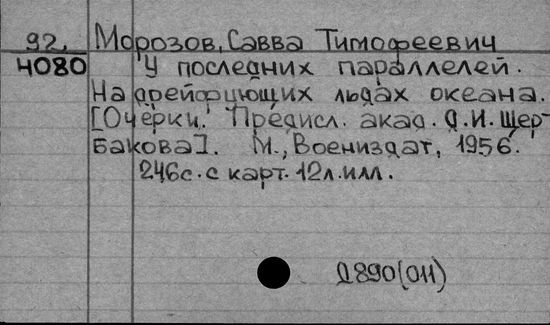 92. Морозов, Савва Тимофеевич
4080 У последних параллелей.
На дрейфующих льдах океана.
[Очерки. Предисл. акад. Д.И. Щер-
бакова]. М., Воениздат, 1956.
246с. с карт. 12л. илл.
Д890(011)